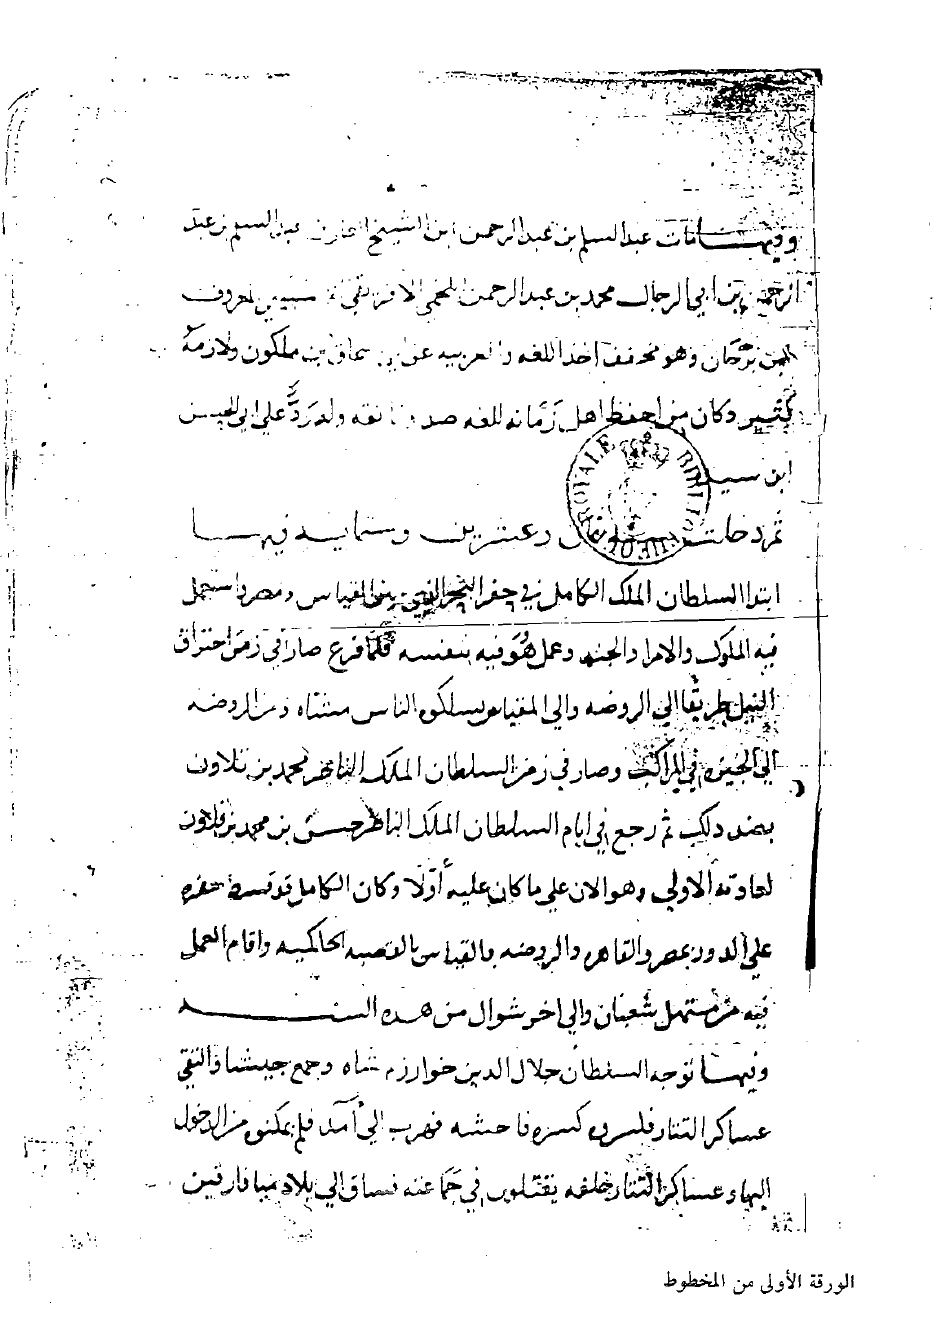 وفيها مات عبد السلم بن عبد الرحمن ابن الشيخ العارف عبد السلم بن عبد
الرحمن بن ابي الرجال محمد بن عبد الرحمن اللخمي الافريقي المعروف
بابن برجان وهو مخفف اخذ اللغه والعربيه عن ابن ملكون ولازمه
كثير وكان من احفظ اهل زمانه للغه صدوقا ثقه وله رد علي ابي الحسن
ابن سيده
ROYALE BIBLIOTH
ثم دخلت سنه ثمان وعشرين وستمايه فيها
ابتدا السلطان الملك الكامل في حفر البحر الذي بين المقياس ومصر واستعمل
فيه الملوك والامرا والجند وعمل هو فيه بنفسه فلما فرغ صار في زمن احتراق
النيل طريقا الي الروضه والي المقياس يسلكه الناس مشاه ومن الروضه
الي الجيزه في المراكب وصار في زمن السلطان الملك الناصر محمد بن قلاون
بضد دلك ثم رجع في ايام السلطان الملك الناصر حسن بن محمد بن قلاون
لعادته الاولي وهو الان علي ما كان عليه أولا وكان الكامل قد قسط حفره
علي الدور بمصر والقاهره والروضه بالقياس بالقصبه الحاكميه واقام العمل
فيه من مستهل شعبان والي اخر شوال من هده السنه
وفيها توجه السلطان جلال الدين خوارزم شاه وجمع جيشا والتقي
عساكر التتار فكسروه كسره فاحشه فهرب الي آمد فلم يمكنوه من الدخول
اليها وعساكر التتار خلفه يقتلون في جماعته فساق الي بلاد ميافارقين
الورقة الأولى من المخطوط